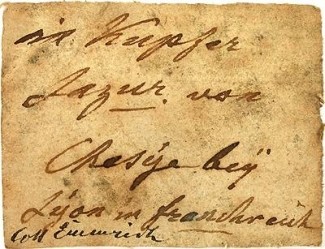 in Kupfer
Lazur. von
Chesÿe beÿ
Lÿon in franckreich
Coll Emmrich